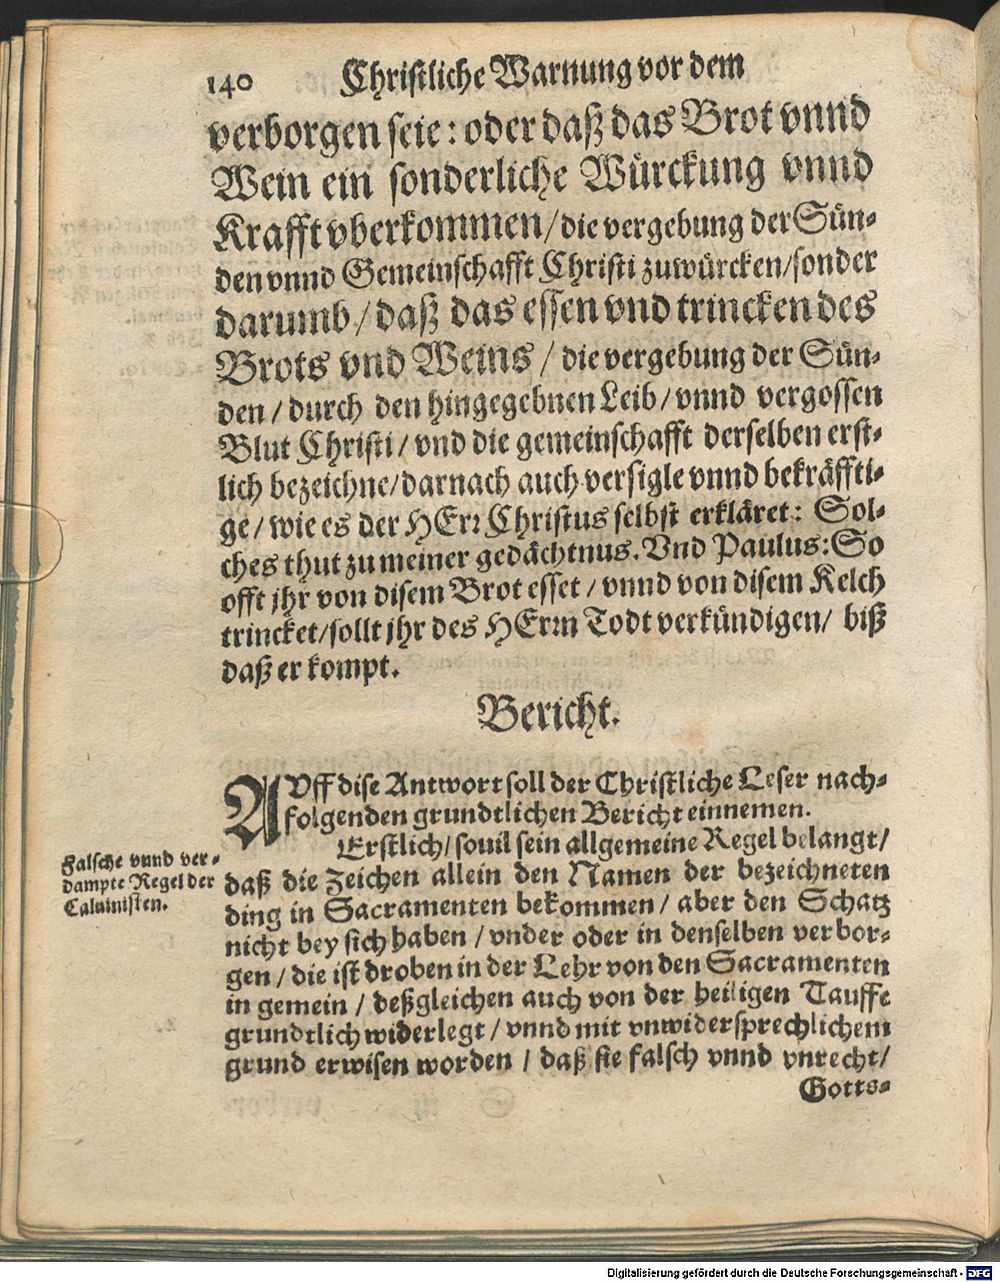 140 Christliche Warnung vor dem
verborgen seie: oder daß das Brot vnnd
Wein ein sonderliche Würckung vnnd
Krafft vberkommen/ die vergebung der Sün-
den vnnd Gemeinschafft Christi zuwürcken/ sonder
darumb/ daß das essen vnd trincken des
Brots vnd Weins / die vergebung der Sün-
den / durch den hingegebnen Leib/ vnnd vergossen
Blut Christi/ vnd die gemeinschafft derselben erst-
lich bezeichne/ darnach auch versigle vnnd bekräffti-
ge/ wie es der HErr Christus selbst erkläret: Sol-
ches thut zu meiner gedächtnus. Vnd Paulus: So
offt jhr von disem Brot esset / vnnd von disem Kelch
trincket/ sollt jhr des HErrn Todt verkündigen/ biß
daß er kompt.
Bericht.
AVff dise Antwort soll der Christliche Leser nach-
folgenden grundtlichen Bericht einnemen.
Erstlich/ souil sein allgemeine Regel belangt/
Falsche vnnd ver-
dampte Regel der
Caluinisten.
daß die Zeichen allein den Namen der bezeichneten
ding in Sacramenten bekommen / aber den Schatz
nicht bey sich haben / vnder oder in denselben verbor-
gen / die ist droben in der Lehr von den Sacramenten
in gemein / deßgleichen auch von der heiligen Tauffe
grundtlich widerlegt / vnnd mit vnwidersprechlichem
grund erwisen worden / daß sie falsch vnnd vnrecht/
Gotts-
Digitalisierung gefördert durch die Deutsche Forschungsgemeinschaft - DFG